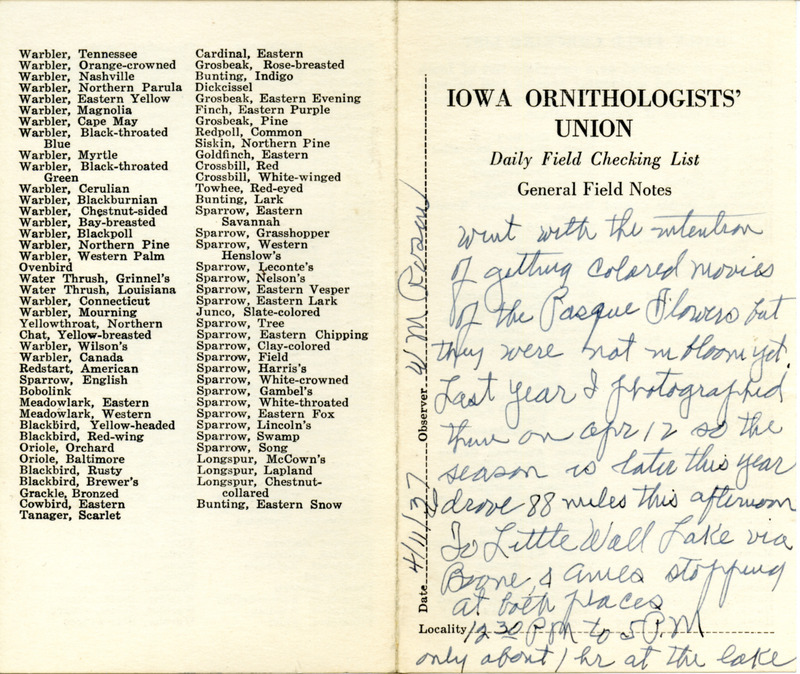 Warbler, Tennessee
Warbler, Orange-crowned
Warbler, Nashville
Warbler, Northern Parula
Warbler, Eastern Yellow
Warbler, Magnolia
Warbler, Cape May
Warbler, Black-throated
Blue
Warbler, Myrtle
Warbler, Black-throated
Green
Warbler, Cerulian
Warbler, Blackburnian
Warbler, Chestnut-sided
Warbler, Bay-breasted
Warbler, Blackpoll
Warbler, Northern Pine
Warbler, Western Palm
Ovenbird
Water Thrush, Grinnel's
Water Thrush, Louisiana
Warbler, Connecticut
Warbler, Mourning
Yellowthroat, Northern
Chat, Yellow-breasted
Warbler, Wilson's
Warbler, Canada
Redstart, American
Sparrow, English
Bobolink
Meadowlark, Eastern
Meadowlark, Western
Blackbird, Yellow-headed
Blackbird, Red-wing
Oriole, Orchard
Oriole, Baltimore
Blackbird, Rusty
Blackbird, Brewer's
Grackle, Bronzed
Cowbird, Eastern
Tanager, Scarlet
Cardinal, Eastern
Grosbeak, Rose-breasted
Bunting, Indigo
Dickcissel
Grosbeak, Eastern Evening
Finch, Eastern Purple
Grosbeak, Pine
Redpoll, Common
Siskin, Northern Pine
Goldfinch, Eastern
Crossbill, Red
Crossbill, White-winged
Towhee, Red-eyed
Bunting, Lark
Sparrow, Eastern
Savannah
Sparrow, Grasshopper
Sparrow, Western
Henslow's
Sparrow, Leconte's
Sparrow, Nelson's
Sparrow, Eastern Vesper
Sparrow, Eastern Lark
Junco, Slate-colored
Sparrow, Tree
Sparrow, Eastern Chipping
Sparrow, Clay-colored
Sparrow, Field
Sparrow, Harris's
Sparrow, White-crowned
Sparrow, Gambel's
Sparrow, White-throated
Sparrow, Eastern Fox
Sparrow, Lincoln's
Sparrow, Swamp
Sparrow, Song
Longspur, McCown's
Longspur, Lapland
Longspur, Chestnut-
collared
Bunting, Eastern Snow
IOWA ORNITHOLOGISTS'
UNION
Daily Field Checking List
General Field Notes
went with the intention
of getting colored movies
of the Pasque Flowers but
they were not in bloom yet.
Last year I photographed
them on apr 12 so the
season is later this year
I drove 88 miles this afternoon
To Little Wall Lake via
Boone & Ames stopping
at both places
Locality 12 30 P M to 5 P. M
only about 1 hr at the lake
Date 4/11/37 Observer W M Rosene